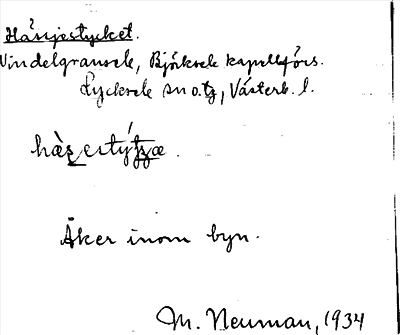 Härjestycket.
Vindelgransele, Björksele kapellförs.
Lycksele sn o. tg, Västerb. l.
Åker inom byn.
M. Neuman, 1934